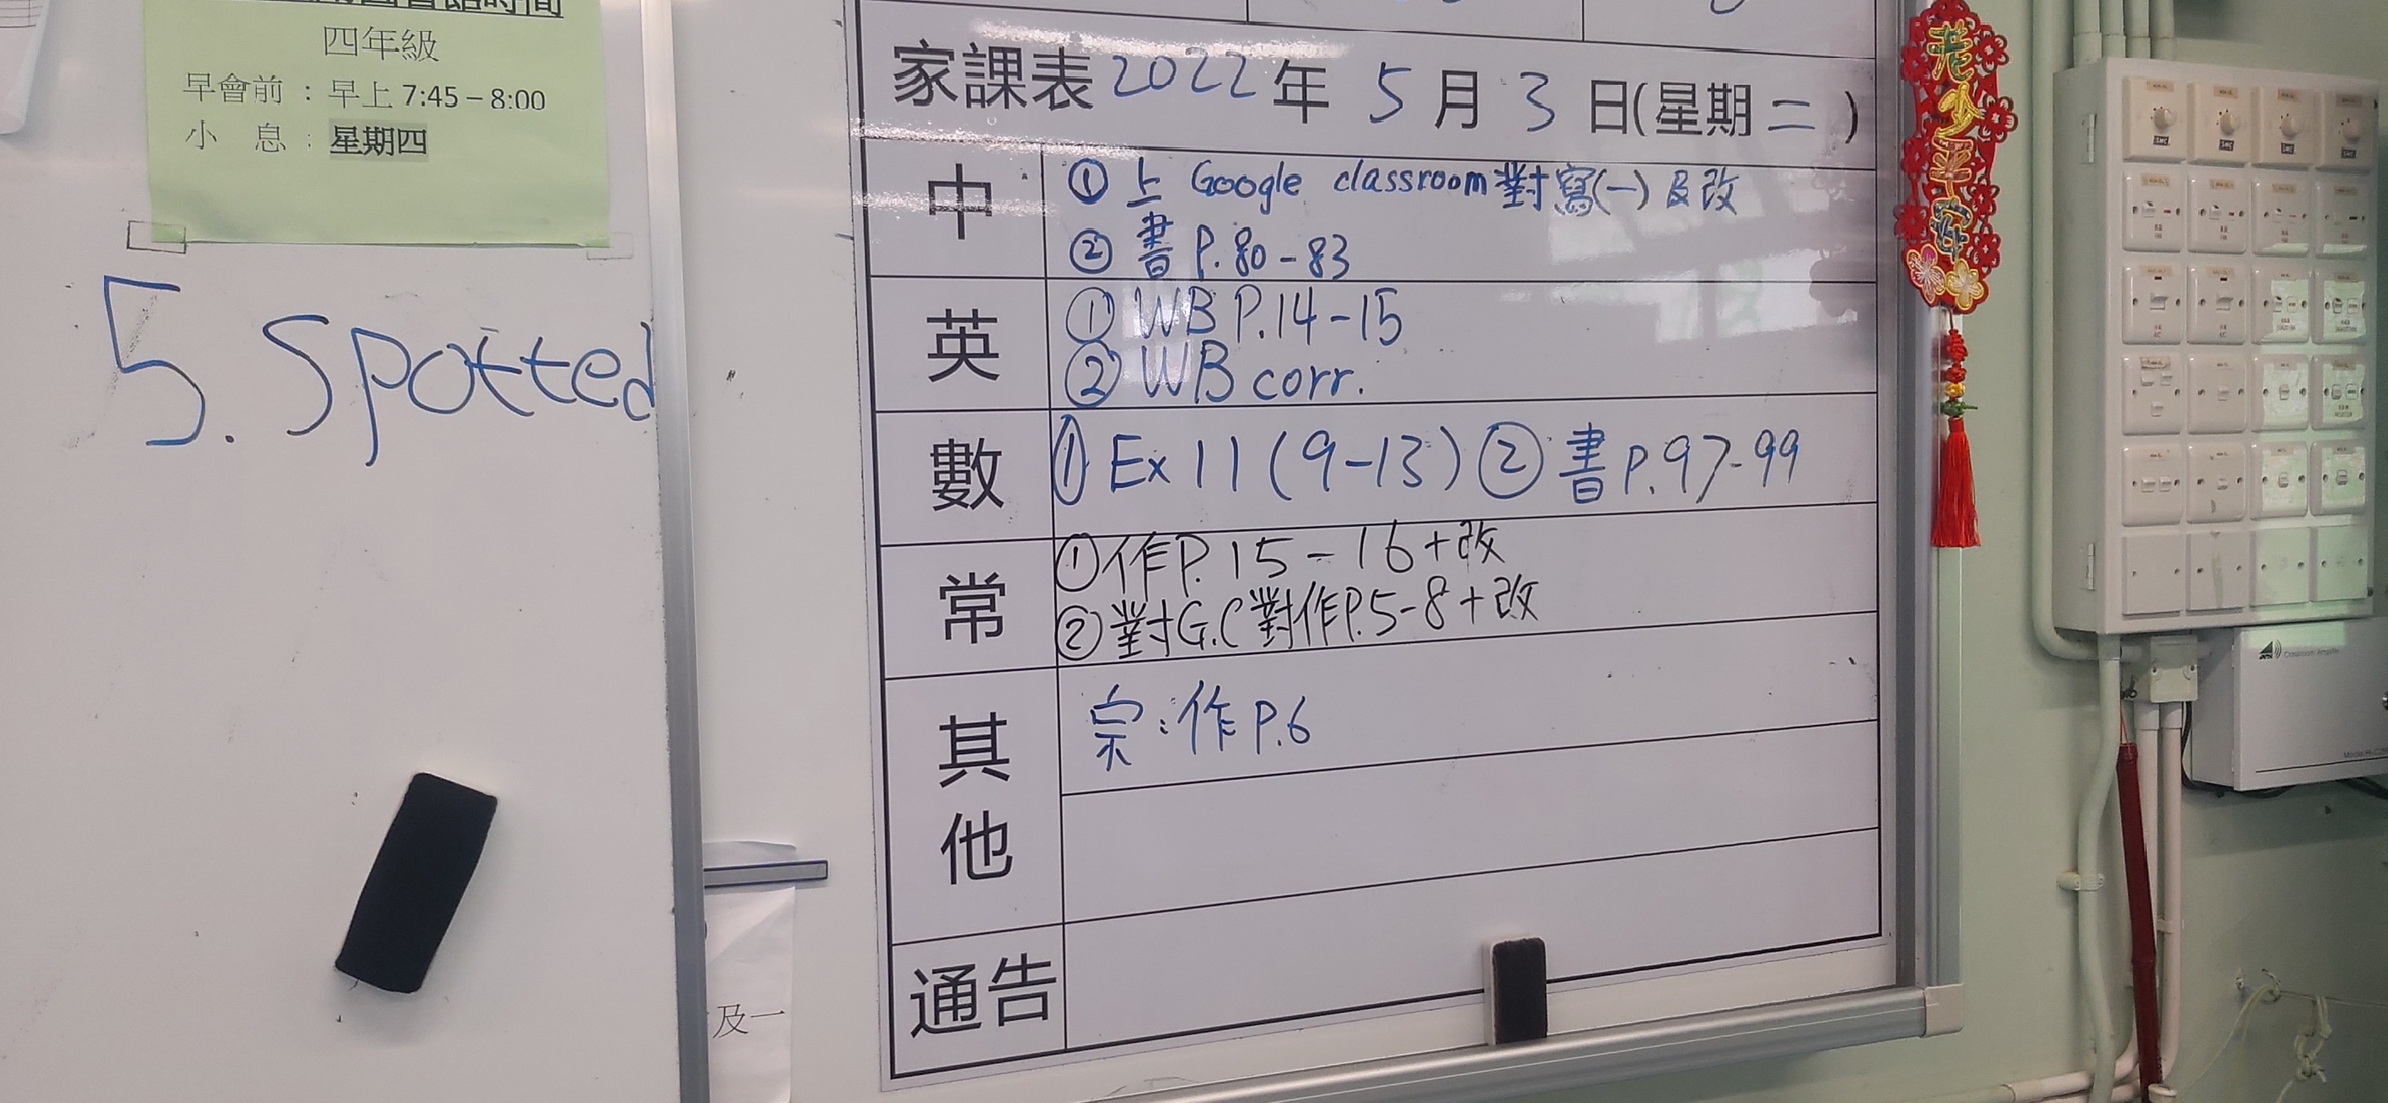 四年級
早會前：早上 7:45 – 8:00
小 息：星期四
5. Spotted
家課表 2022 年 5 月 3 日(星期 二 )
中
① 上 Google classroom 對寫(一) 及改
② 書 P. 80-83
英
① WB P.14-15
② WB corr.
數
① Ex 11 (9-13) ② 書 P.97-99
常
① 作P. 15 - 16 + 改
② 對G.C對作P.5-8 + 改
其他
宗：作 P.6
通告
及一